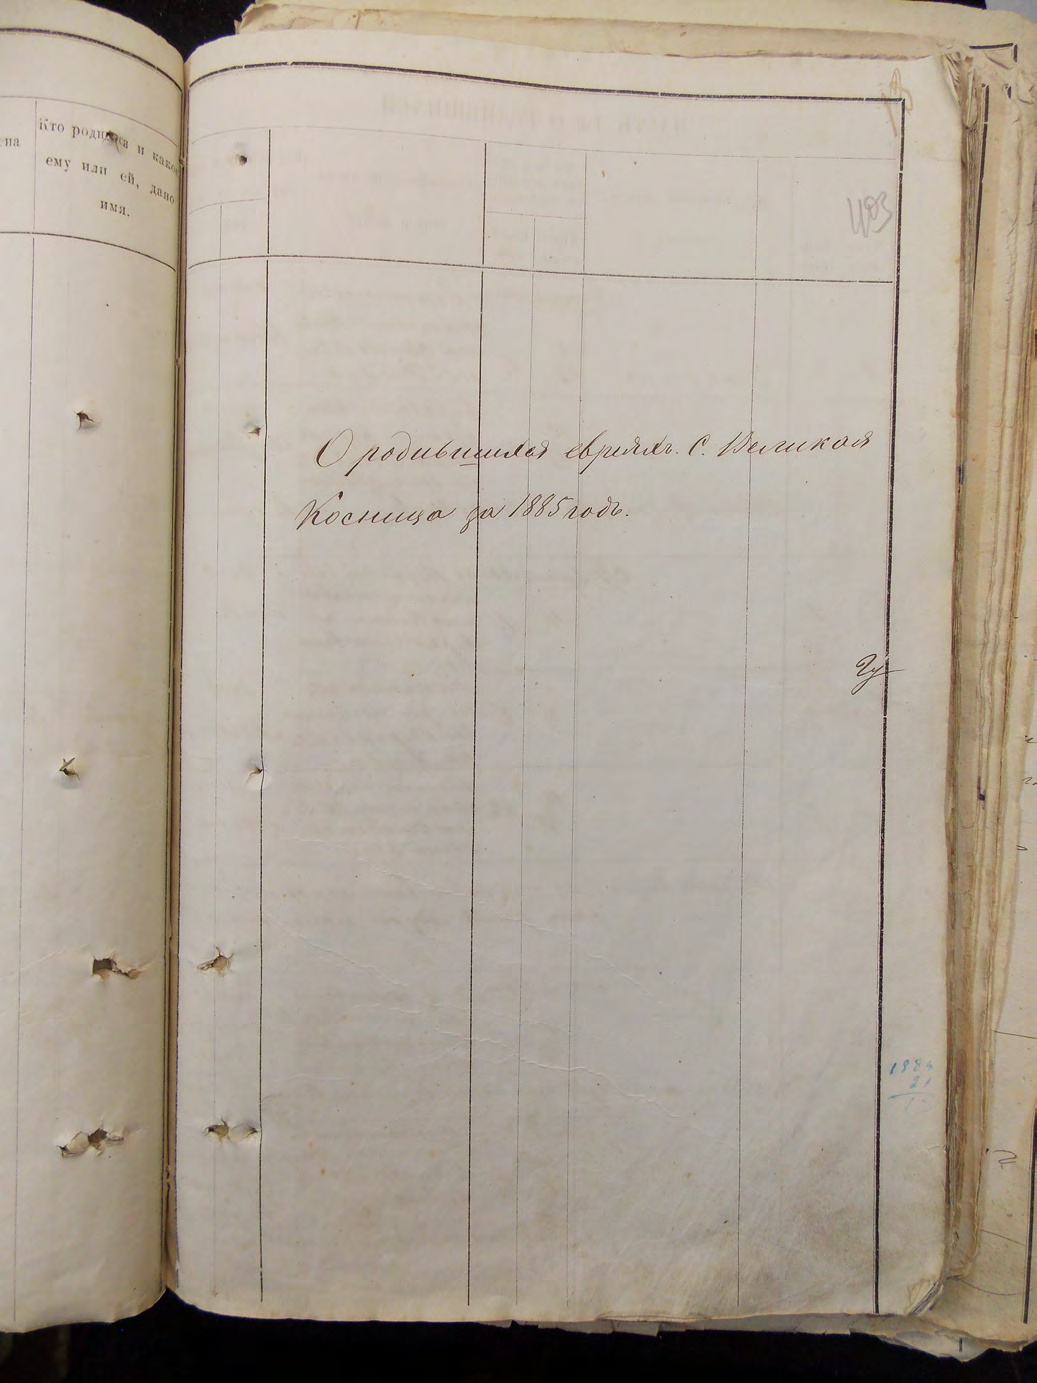 на
Кто родился и како
ему или ей, дано
имя.
403
О родившихся евреяхъ. С. Великая
Косница за 1885 годъ.